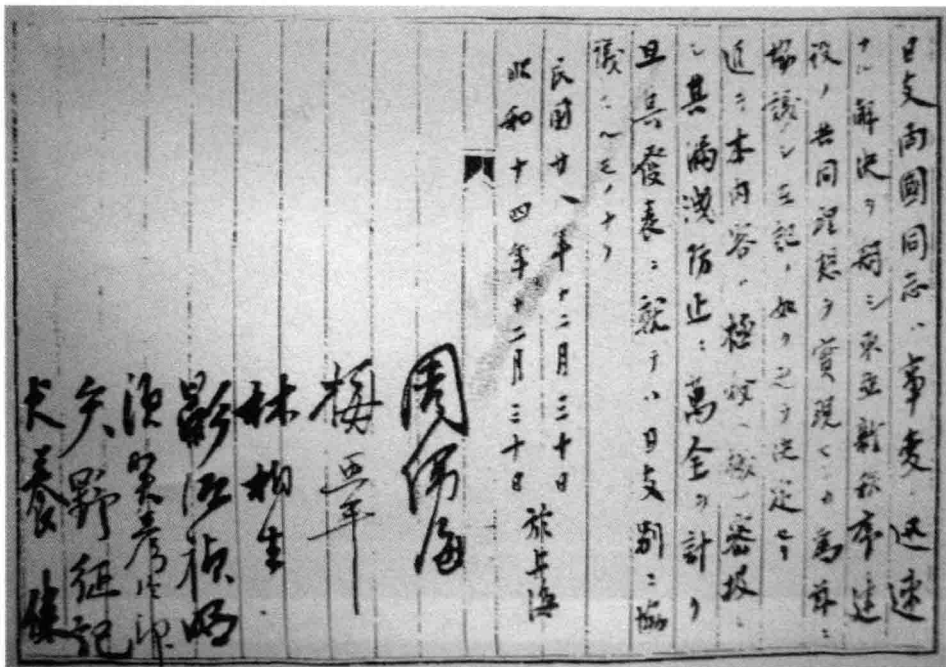 日支両國同志ハ事変ノ迅速
ナル解決ヲ期シ東亜新秩序建
設ノ共同理想ヲ實現センカ為茲ニ
協議シ左記ノ如ク之ヲ決定セリ
追テ本内容ハ極秘
シ其漏洩防止ニ萬全ヲ計リ
且其發表ニ就テハ日支別ニ協
議スヘキモノトス
民國廿八年十二月三十日
昭和十四年十二月三十日 於上海
周佛海
梅思平
林柏生
影佐禎昭
須賀彦次郎
矢野征記
犬養健